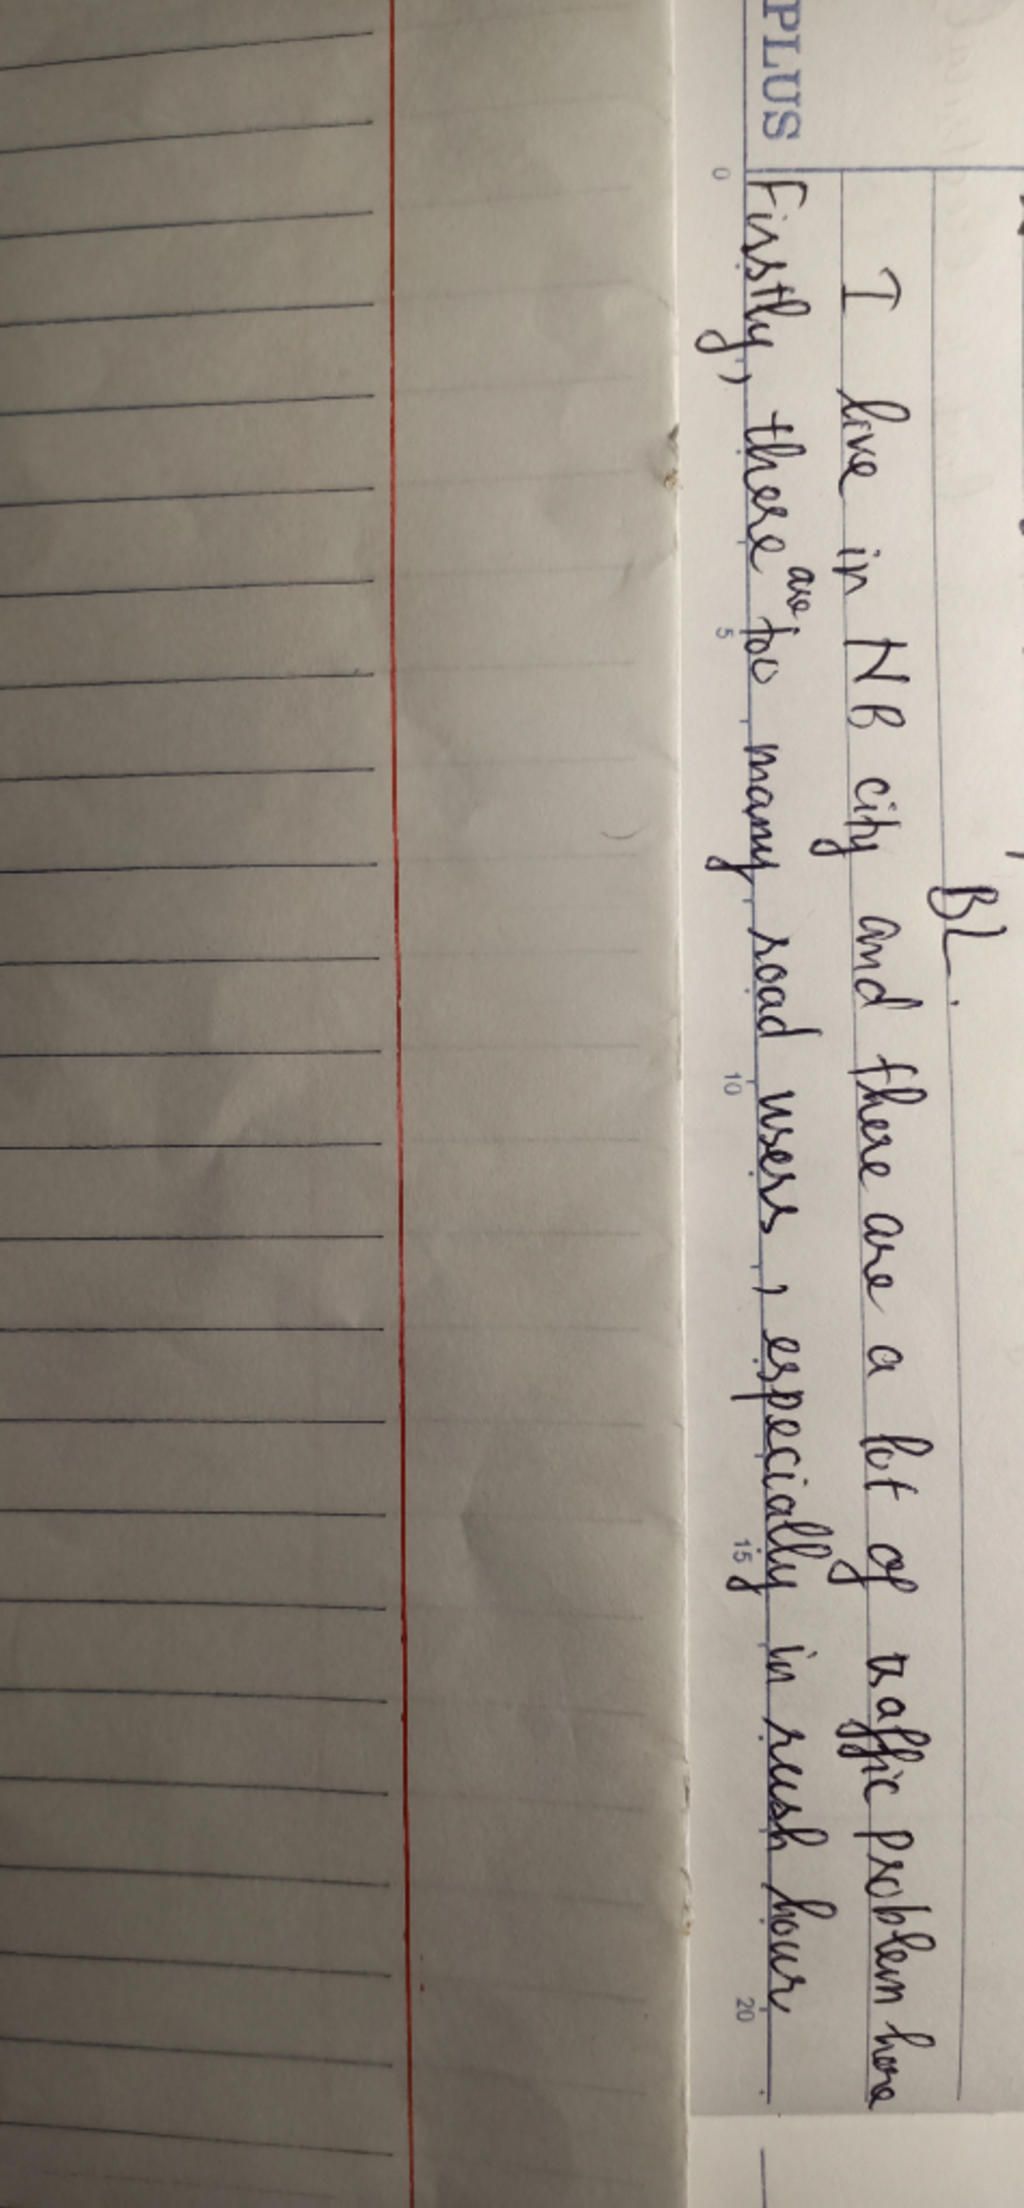 BL.
I live in NB city and there are a lot of traffic problem here
PLUS
Firstly, there are too many road users, especially in rush hour
0 5 10 15 20